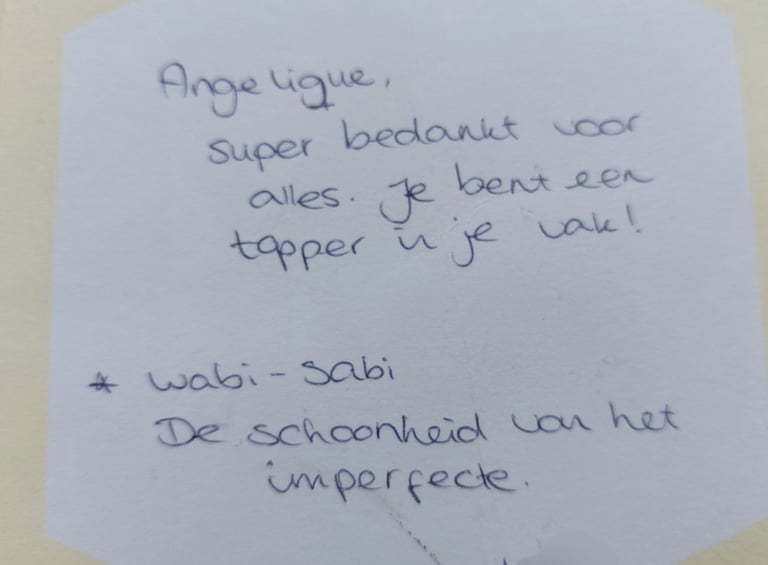 Angelique,
super bedankt voor
alles. Je bent een
topper in je vak!
* wabi-sabi
De schoonheid van het
imperfecte.